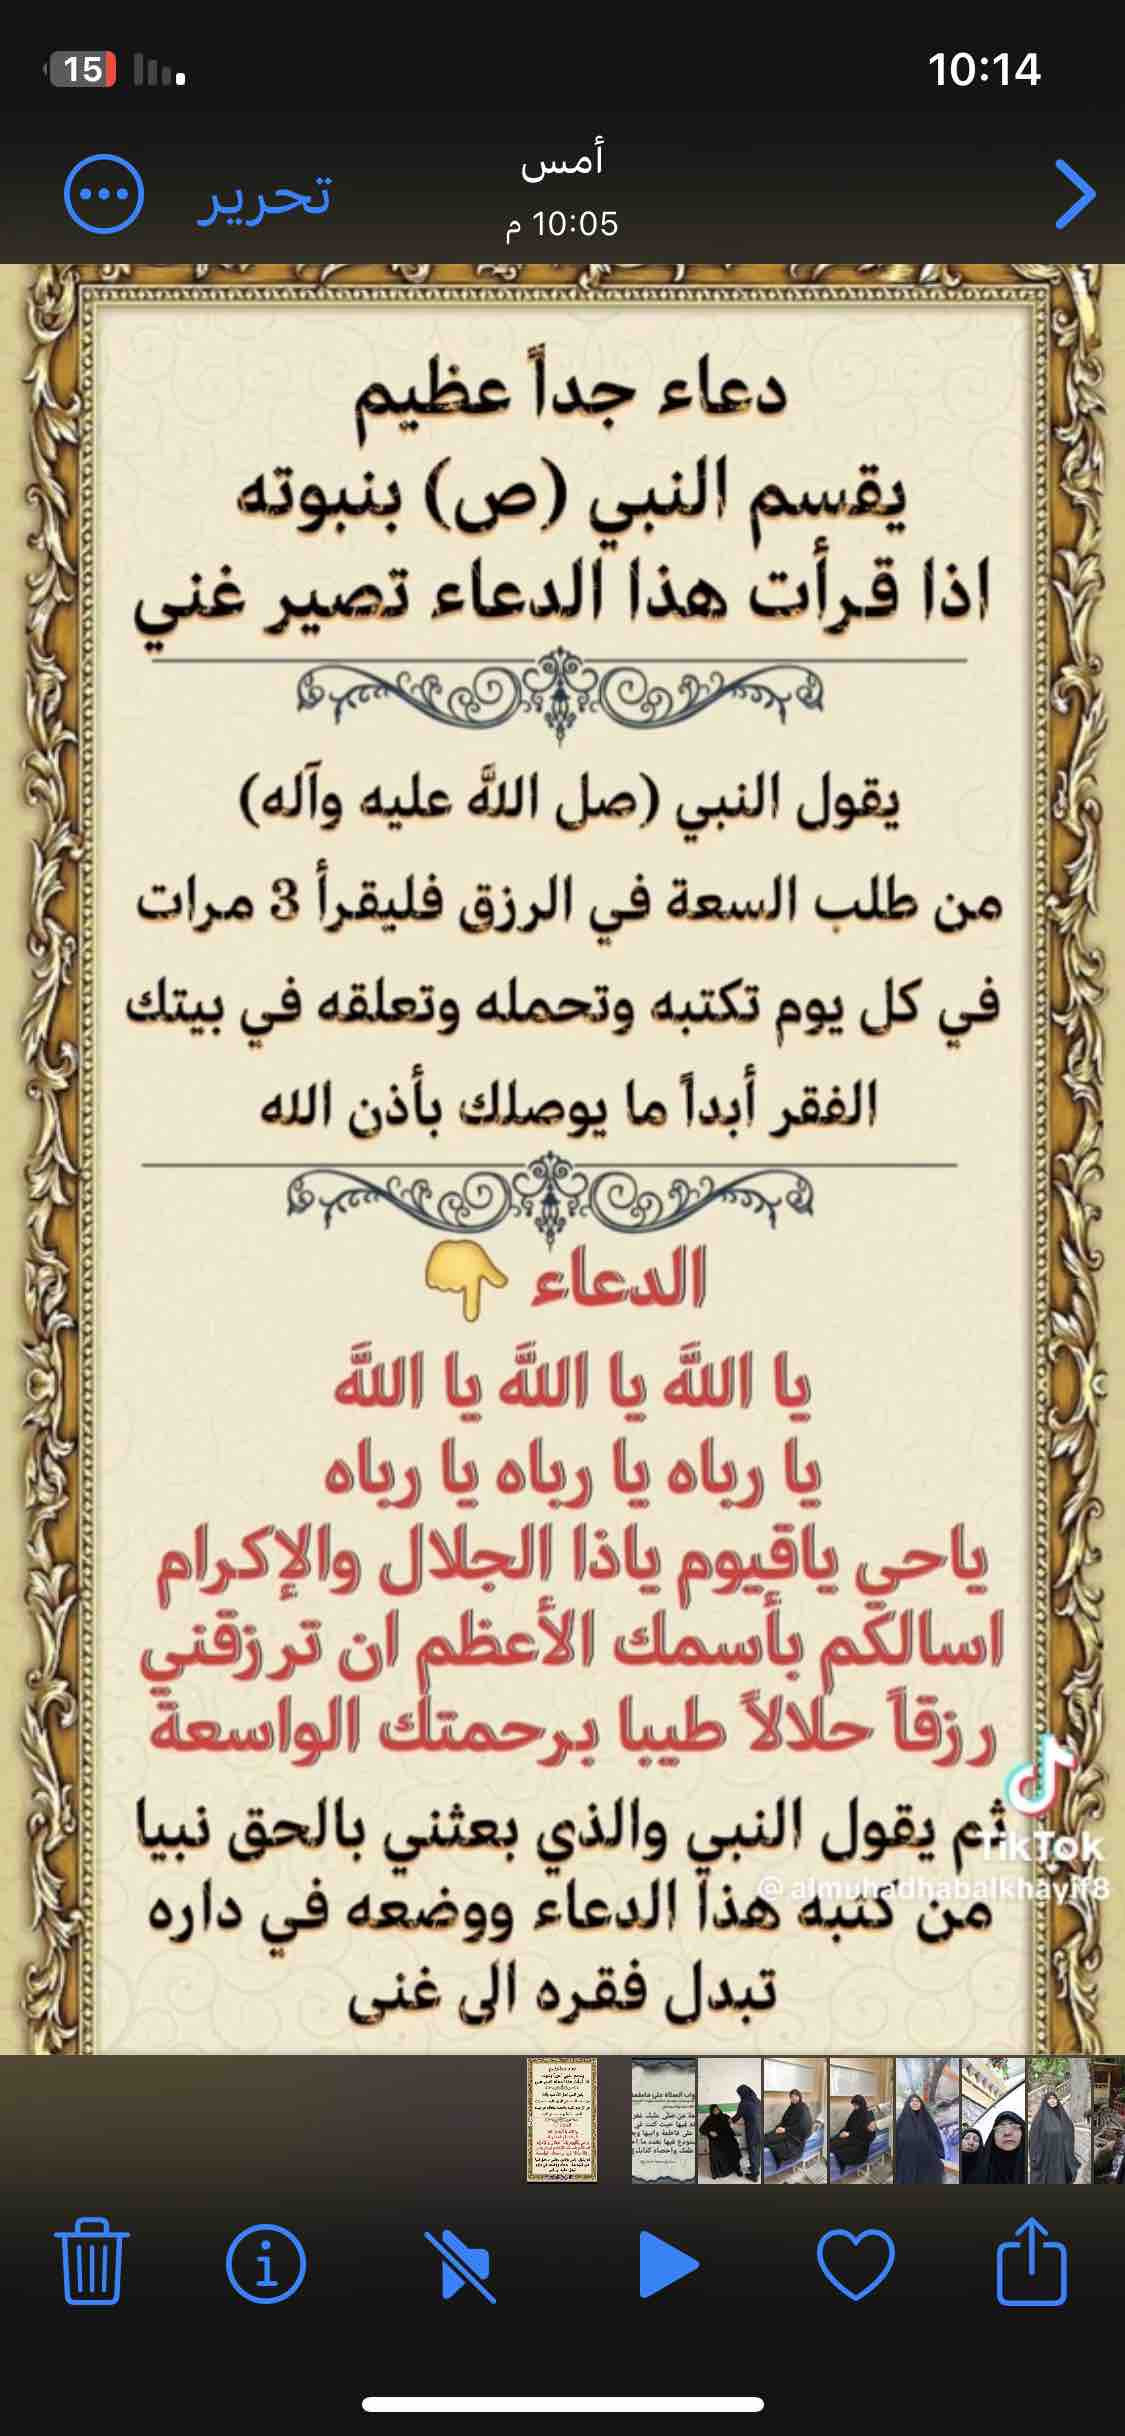 10:14
15
أمس
10:05 م
تحرير
دعاء جداً عظيم
يقسم النبي (ص) بنبوته
اذا قرأت هذا الدعاء تصير غني
يقول النبي (صل الله عليه وآله)
من طلب السعة في الرزق فليقرأ 3 مرات
في كل يوم تكتبه وتحمله وتعلقه في بيتك
الفقر أبداً ما يوصلك بأذن الله
الدعاء 👇
يا الله يا الله يا الله
يا رباه يا رباه يا رباه
ياحي ياقيوم ياذا الجلال والإكرام
اسالكم بأسمك الأعظم ان ترزقني
رزقاً حلالاً طيبا برحمتك الواسعة
ثم يقول النبي والذي بعثني بالحق نبيا
من كتبه هذا الدعاء ووضعه في داره
تبدل فقره الى غنى
TikTok
@almuhadhabalkhayif8